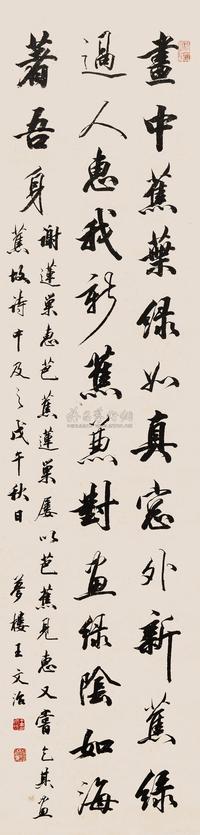 畫中蕉葉綠如真窓外新蕉綠
過人惠我新蕉兼對畫綠陰如海
著吾身
謝蓮巢惠芭蕉蓮巢屡以芭蕉見惠又嘗乞其畫
蕉故詩中及之戊午秋日
夢樓王文治